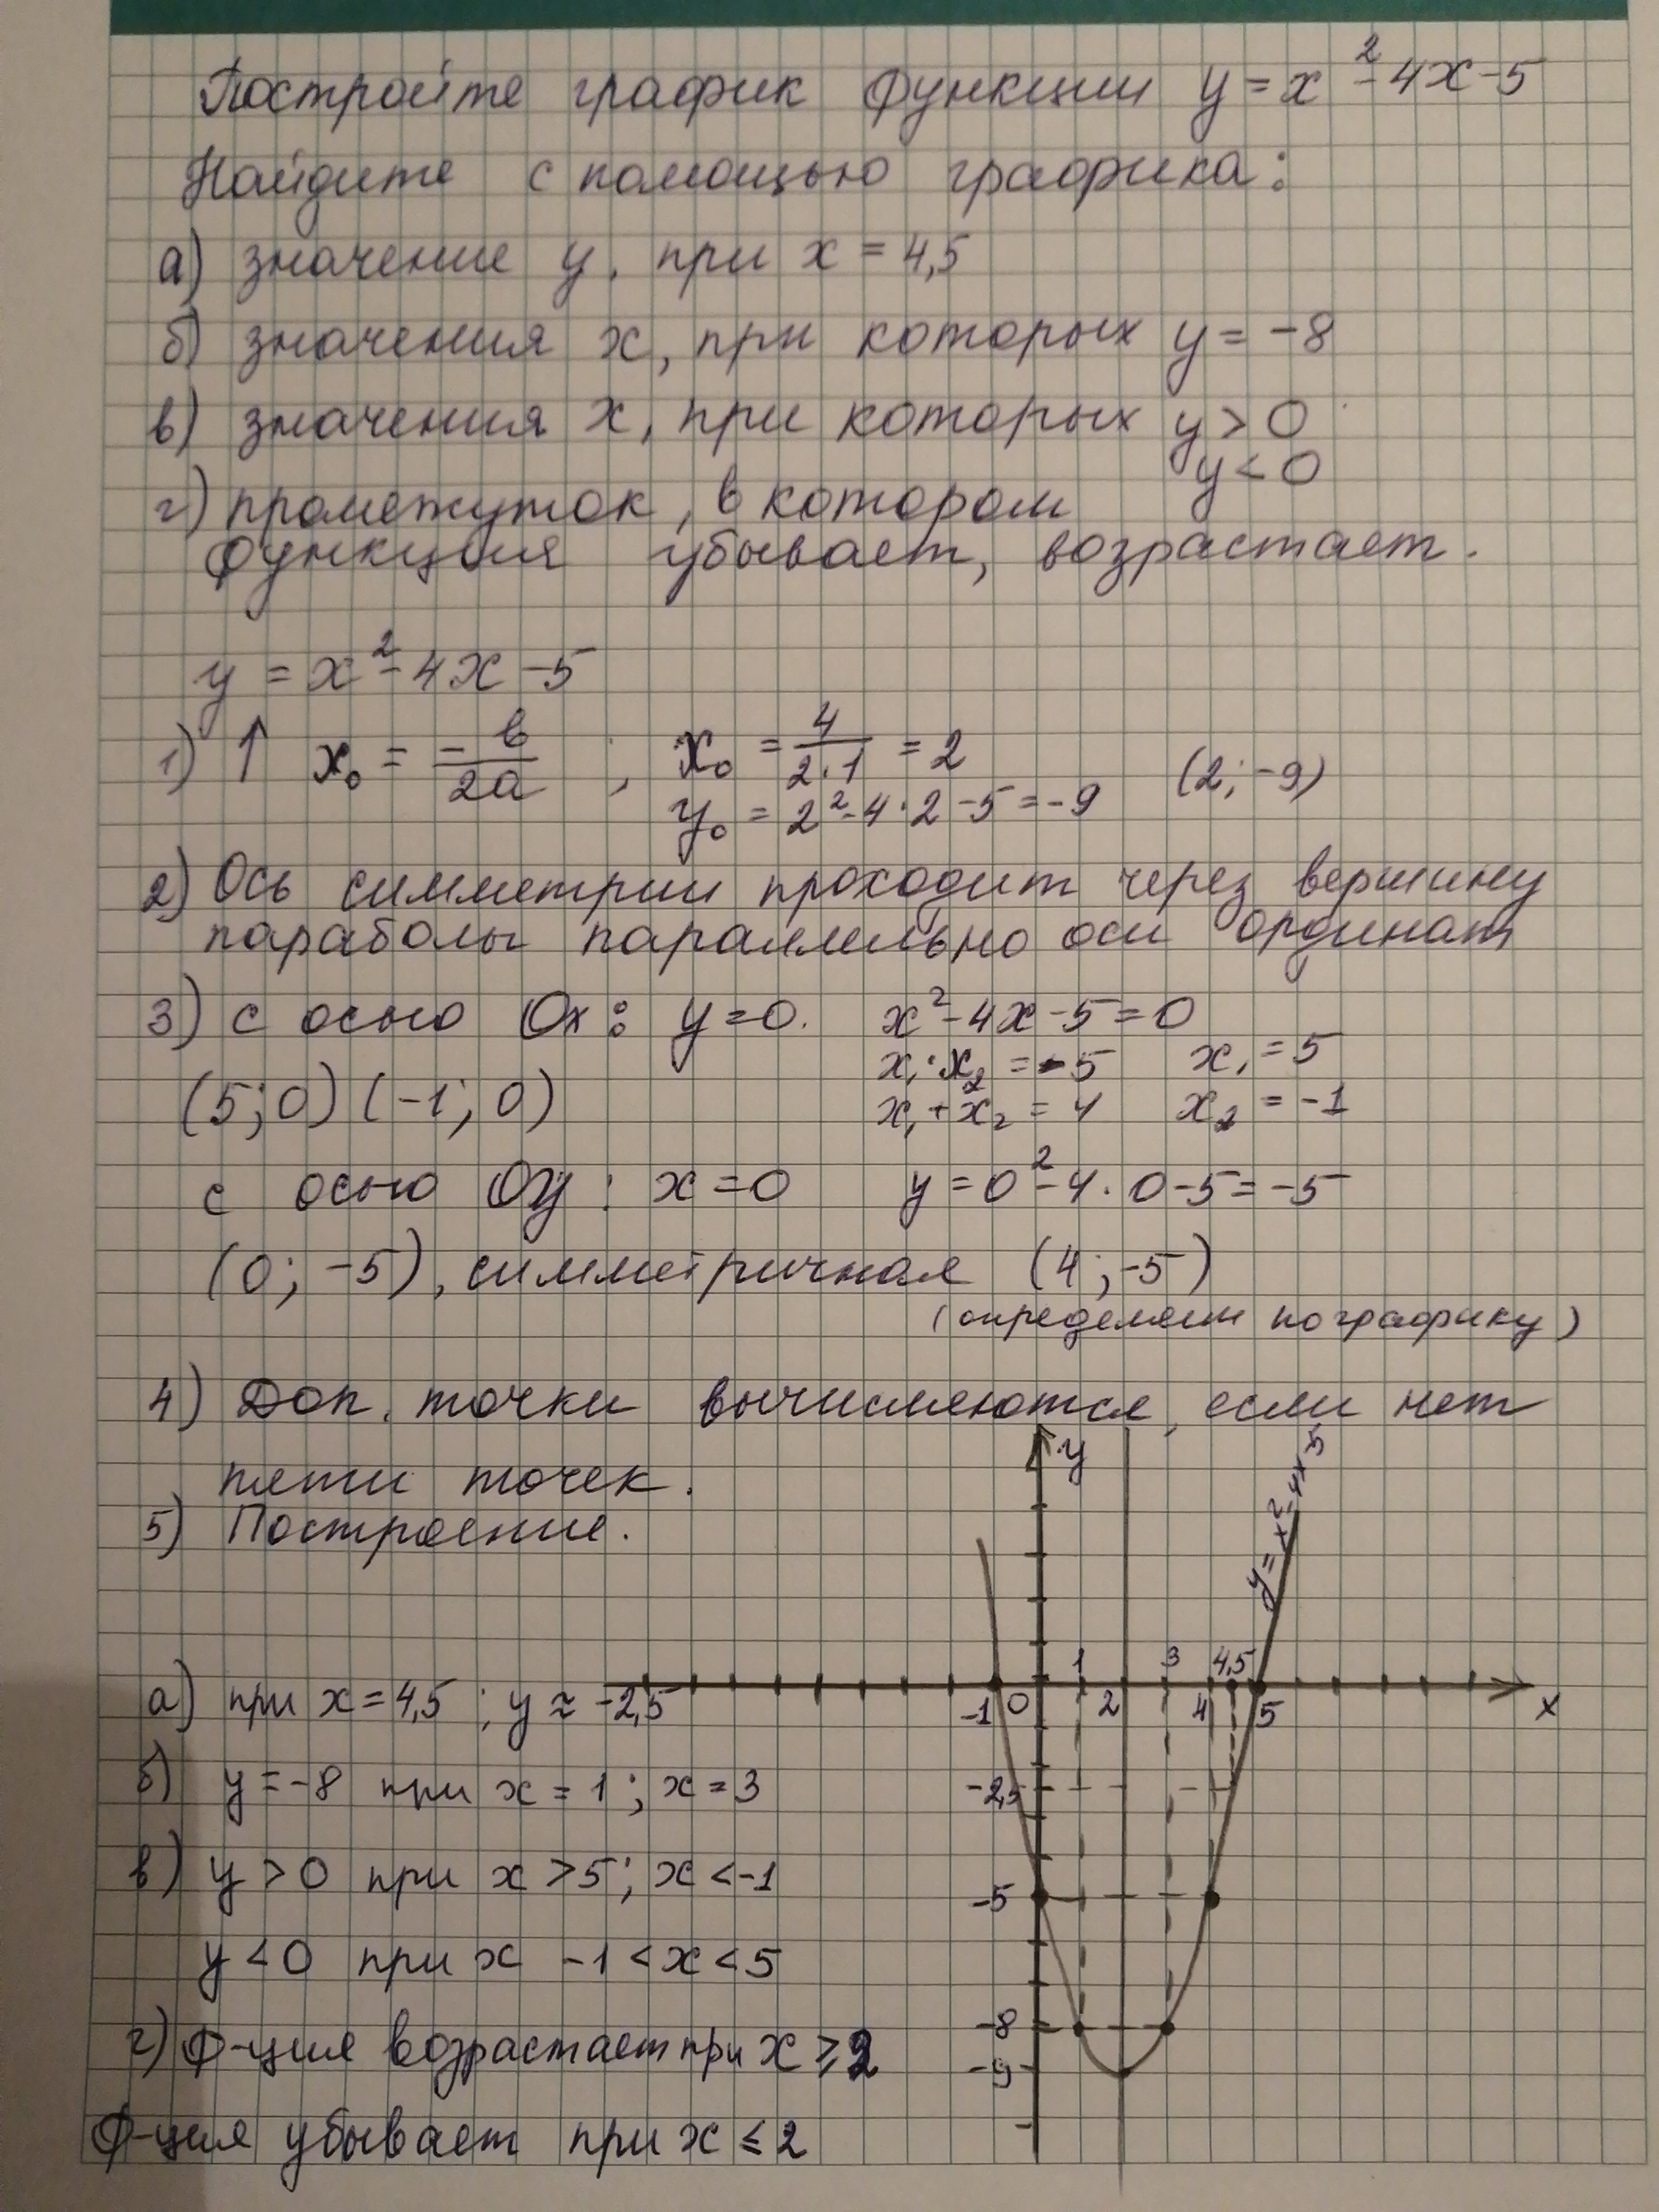 Постройте график функции y = x² - 4x - 5
Найдите с помощью графика:
а) значение y, при x = 4,5
б) значения x, при которых y = -8
в) значения x, при которых y > 0
y < 0
г) промежуток, в котором
функция убывает, возрастает.
y = x² - 4x - 5
1) ↑ x₀ = -b/2a ; x₀ = 4/2·1 = 2 (2; -9)
y₀ = 2² - 4·2 - 5 = -9
2) Ось симметрии проходит через вершину
параболы параллельно оси ординат
3) с осью Ox: y = 0. x² - 4x - 5 = 0
x₁·x₂ = -5 x₁ = 5
(5; 0) (-1; 0) x₁ + x₂ = 4 x₂ = -1
с осью Oy: x = 0 y = 0² - 4·0 - 5 = -5
(0; -5), симметричная (4; -5)
(определяем по графику)
4) Доп. точки вычисляются, если нет
пяти точек.
5) Построение.
y
y = x² - 4x - 5
1 3 4,5
-1 0 2 4 5 x
-2,5
-5
-8
-9
а) при x = 4,5 ; y ≈ -2,5
б) y = -8 при x = 1 ; x = 3
в) y > 0 при x > 5; x < -1
y < 0 при x -1 < x < 5
г) Ф-ция возрастает при x ≥ 2
Ф-ция убывает при x ≤ 2